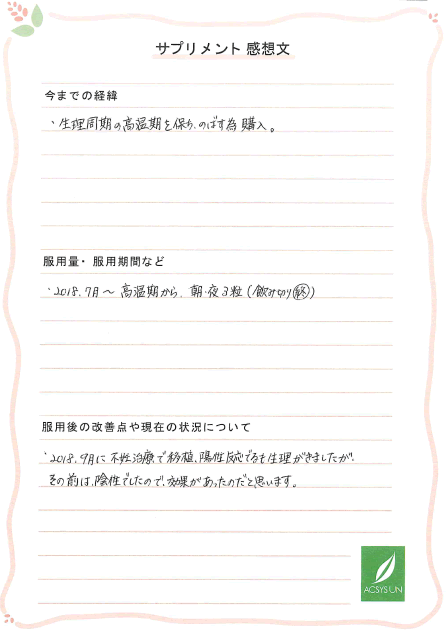 サプリメント 感想文
今までの経緯
・生理周期の高温期を保ち、のばす為 購入。
服用量・服用期間など
・2018.7月〜 高温期から、朝・夜 3粒（飲み切り終）
服用後の改善点や現在の状況について
・2018.9月に 不妊治療で移植、陽性反応でるも生理がきましたが、
その前は、陰性でしたので、効果があったのだと思います。
ACSYSUN